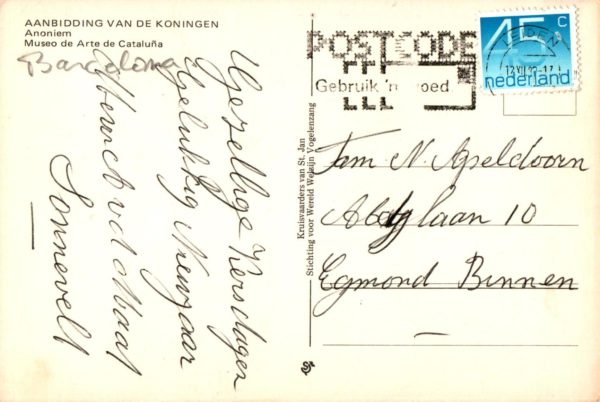 AANBIDDING VAN DE KONINGEN
Anoniem
Museo de Arte de Cataluña
Barcelona
Gezellige Kerstdagen
Gelukkig Nieuwjaar
wenscht v/d Maat
Sonnevelt
Kruisvaarders van St. Jan
Stichting voor Wereld Welzijn Vogelenzang
POSTCODE
Gebruik 'm goed
LEIDEN
45 c
nederland
Fam N. Apeldoorn
Abdylaan 10
Egmond Binnen